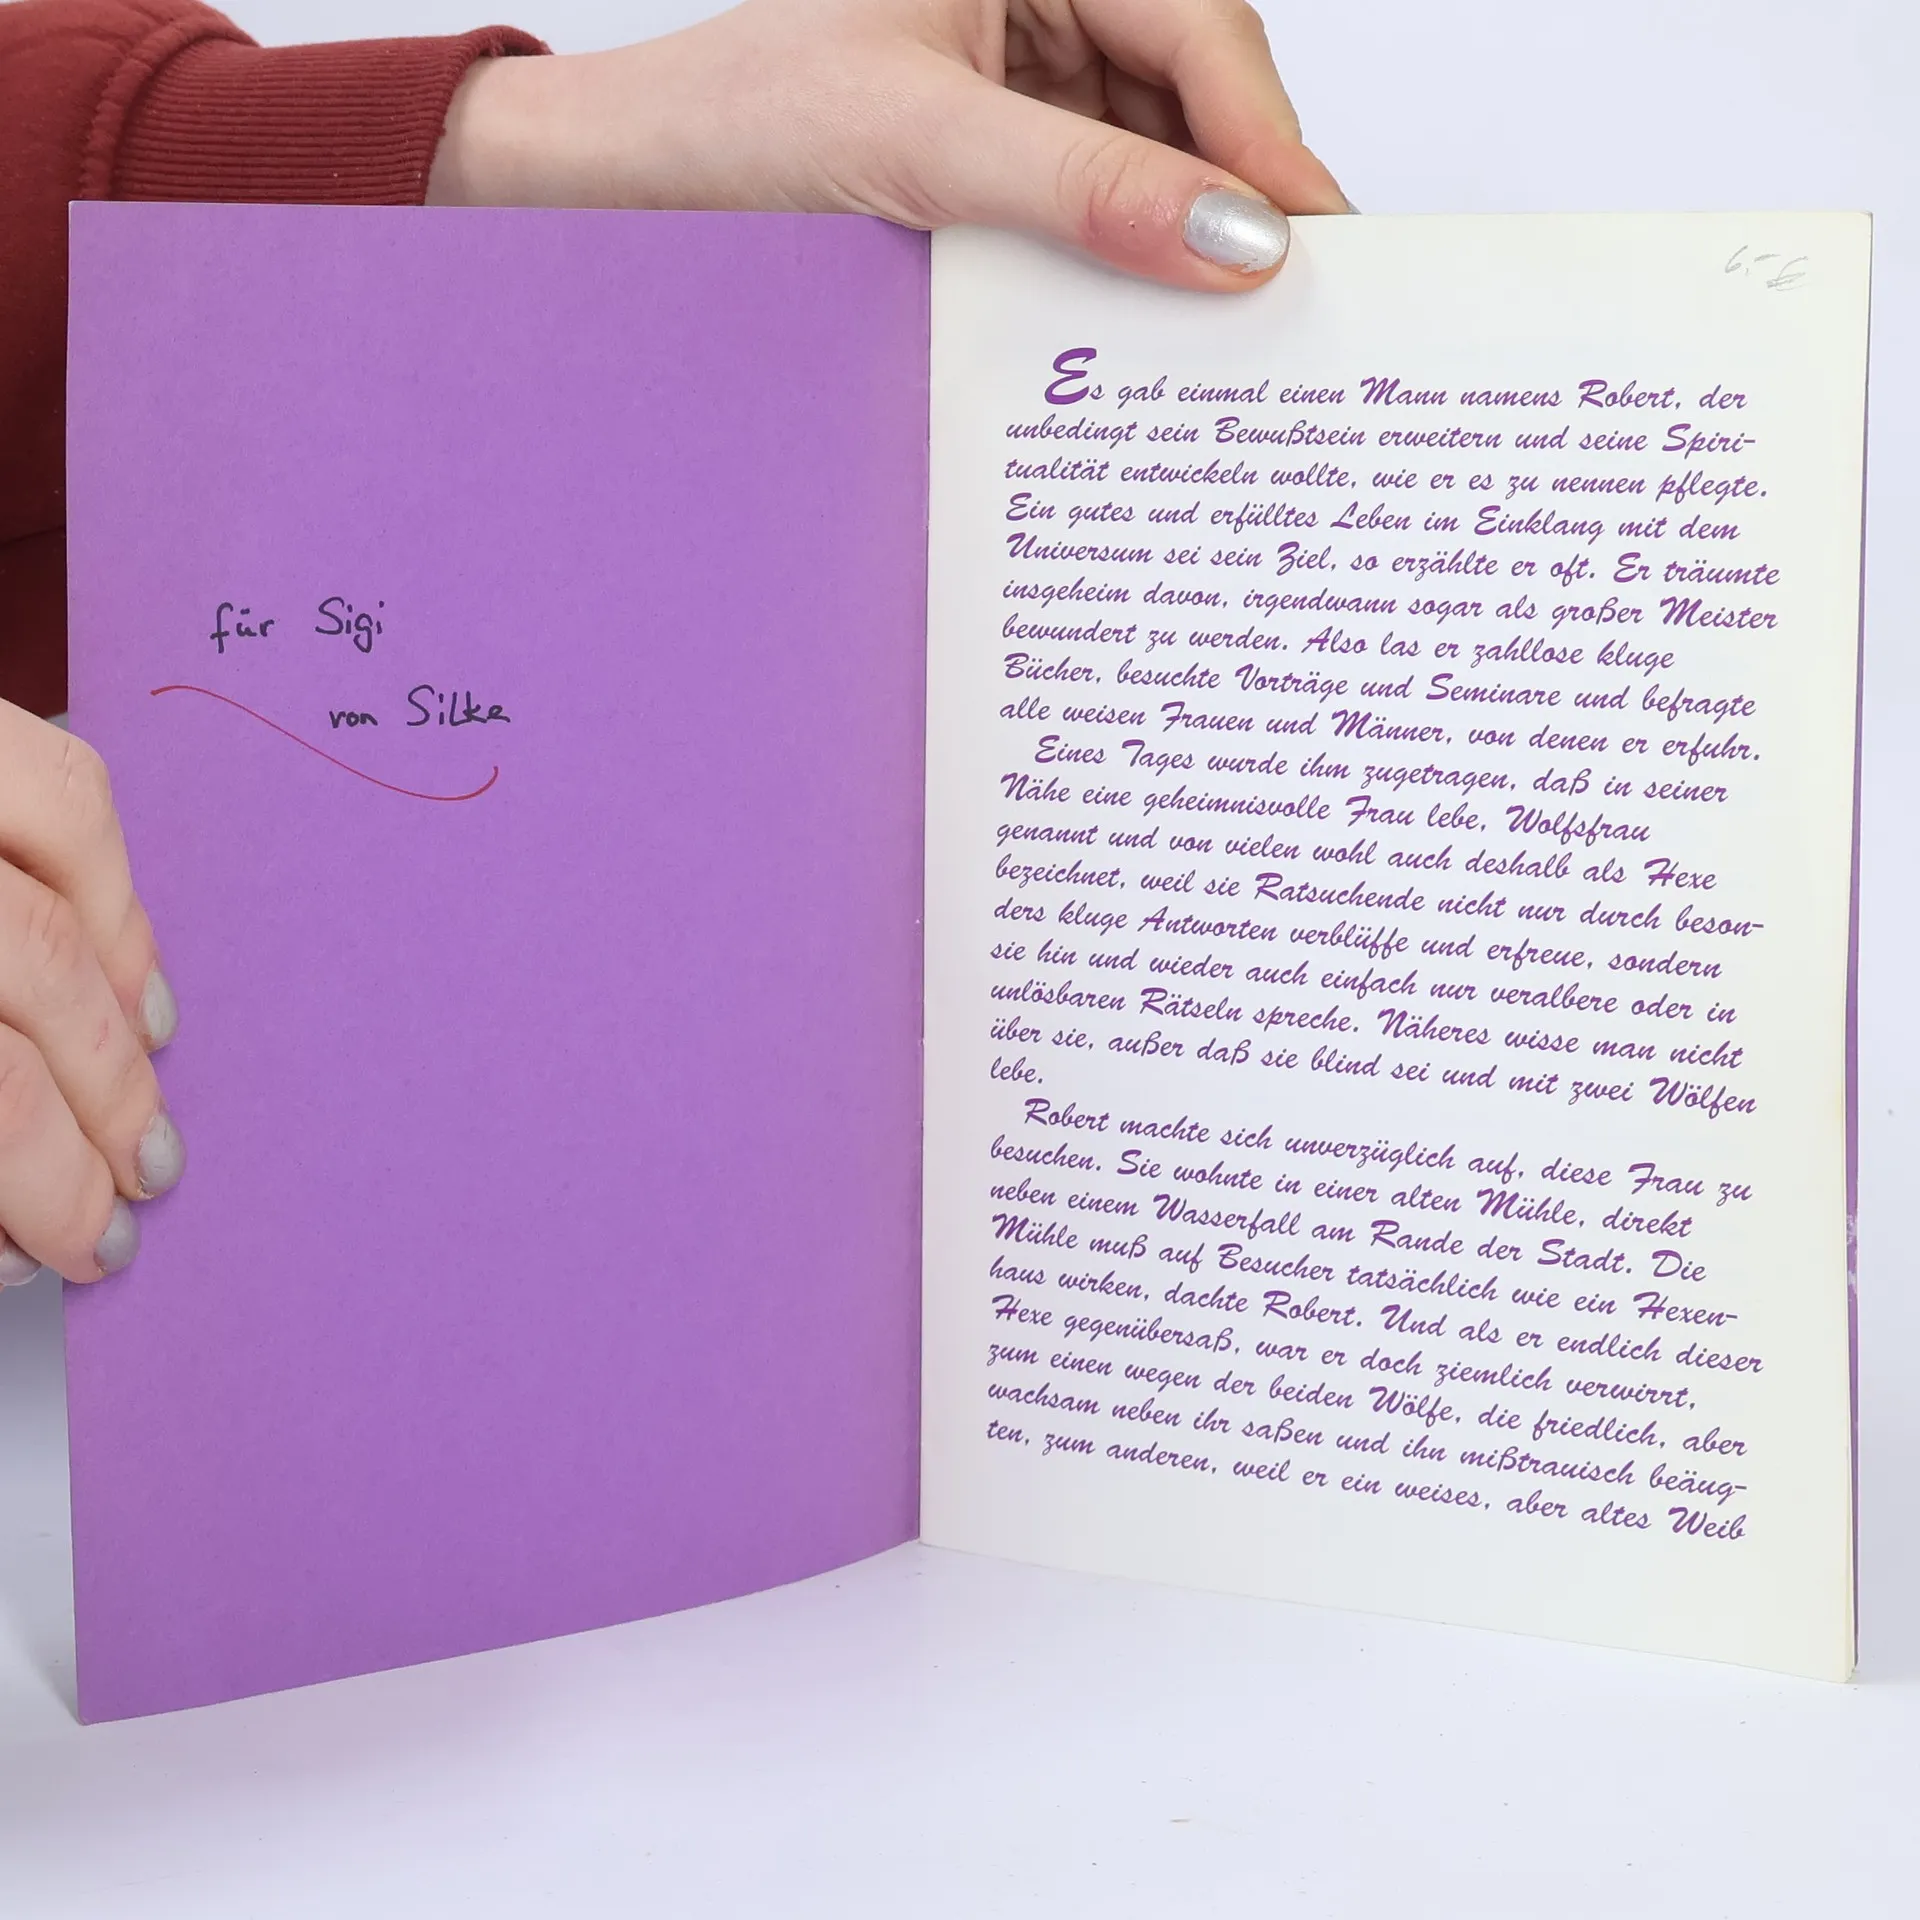 für Sigi
von Silke
6,- €
Es gab einmal einen Mann namens Robert, der
unbedingt sein Bewußtsein erweitern und seine Spiri-
tualität entwickeln wollte, wie er es zu nennen pflegte.
Ein gutes und erfülltes Leben im Einklang mit dem
Universum sei sein Ziel, so erzählte er oft. Er träumte
insgeheim davon, irgendwann sogar als großer Meister
bewundert zu werden. Also las er zahllose kluge
Bücher, besuchte Vorträge und Seminare und befragte
alle weisen Frauen und Männer, von denen er erfuhr.
Eines Tages wurde ihm zugetragen, daß in seiner
Nähe eine geheimnisvolle Frau lebe, Wolfsfrau
genannt und von vielen wohl auch deshalb als Hexe
bezeichnet, weil sie Ratsuchende nicht nur durch beson-
ders kluge Antworten verblüffe und erfreue, sondern
sie hin und wieder auch einfach nur veralbere oder in
unlösbaren Rätseln spreche. Näheres wisse man nicht
über sie, außer daß sie blind sei und mit zwei Wölfen
lebe.
Robert machte sich unverzüglich auf, diese Frau zu
besuchen. Sie wohnte in einer alten Mühle, direkt
neben einem Wasserfall am Rande der Stadt. Die
Mühle muß auf Besucher tatsächlich wie ein Hexen-
haus wirken, dachte Robert. Und als er endlich dieser
Hexe gegenübersaß, war er doch ziemlich verwirrt,
zum einen wegen der beiden Wölfe, die friedlich, aber
wachsam neben ihr saßen und ihn mißtrauisch beäug-
ten, zum anderen, weil er ein weises, aber altes Weib